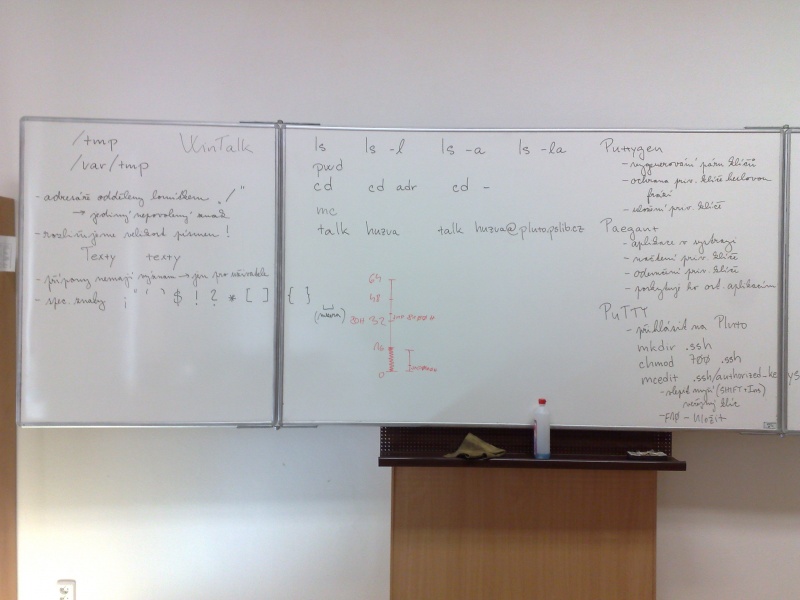 /tmp WinTalk
/var/tmp
- adresáře odděleny lomítkem „/"
→ jediný nepovolený znak
- rozlišujeme velikost písmen !
Texty texty
- přípony nemají význam → jen pro uživatele
- spec. znaky ; " ' ` $ ! ? * [ ] { }
ls ls -l ls -a ls -la
pwd
cd cd adr cd -
mc
talk huzva talk huzva@pluto.pslib.cz
64
48
32
16
0
Puttygen
- vygenerování páru klíčů
- ochrana priv. klíče heslovou
frází
- uložení priv. klíče
Paegant
- aplikace v
- načtení priv. klíče
- odemčení priv. klíče
- poskytuje ho ost. aplikacím
PuTTY
- přihlásit na Pluto
mkdir .ssh
chmod 700 .ssh
mcedit .ssh/authorized_keys
- (SHIFT+Ins)
veřejný klíč
- F10 - Uložit